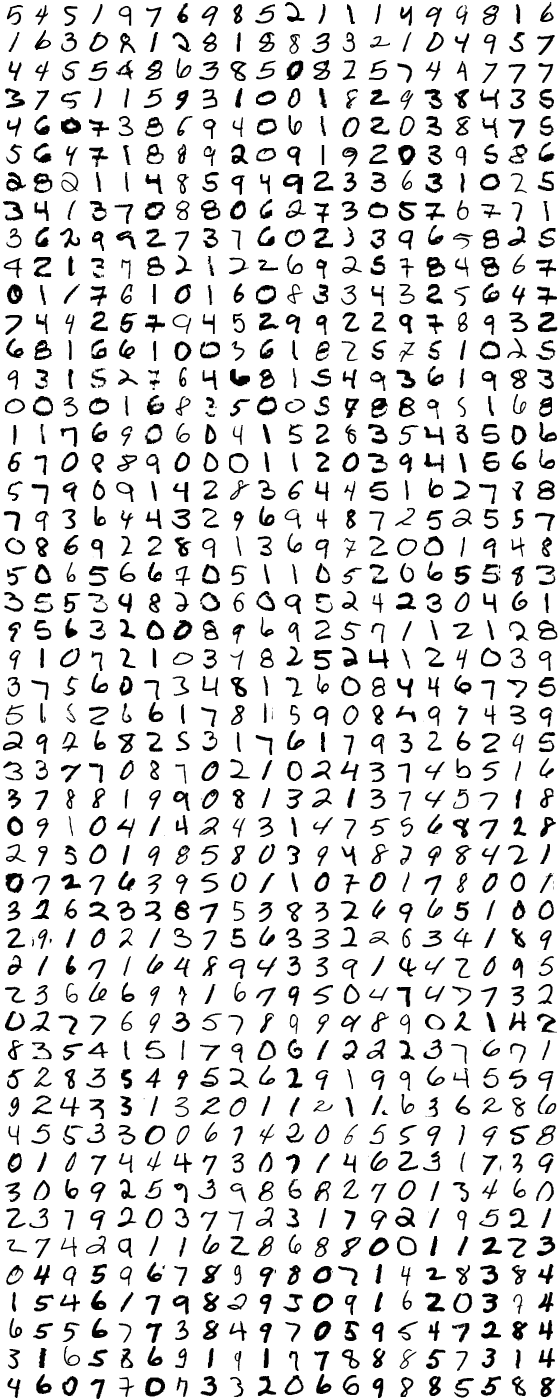 5 4 5 1 9 7 6 9 8 5 2 1 1 1 4 9 9 8 1 6
1 6 3 0 8 1 2 8 1 8 8 3 3 2 1 0 4 9 5 7
4 4 5 5 4 8 6 3 8 5 0 8 2 5 7 4 4 7 7 7
3 7 5 1 1 5 9 3 1 0 0 1 8 2 9 3 8 4 3 5
4 6 0 7 3 8 6 9 4 0 6 1 0 2 0 3 8 4 7 5
5 6 4 7 1 8 8 9 2 0 9 1 9 2 0 3 9 5 8 6
2 8 2 1 1 4 8 5 9 4 9 2 3 3 6 3 1 0 2 5
3 4 1 3 7 0 8 8 0 6 2 7 3 0 5 7 6 7 7 1
3 6 2 9 9 2 7 3 7 6 0 2 3 3 9 6 5 8 2 5
4 2 1 3 7 8 2 1 2 2 6 9 2 5 7 8 4 8 6 7
0 1 1 7 6 1 0 1 6 0 8 3 3 4 3 2 5 6 4 7
7 4 4 2 5 7 9 4 5 2 9 9 2 2 9 7 8 9 3 2
6 8 1 6 6 1 0 0 3 6 1 8 2 5 7 5 1 0 2 5
9 3 1 5 2 7 6 4 6 8 1 5 4 9 3 6 1 9 8 3
0 0 3 0 1 6 8 3 5 0 0 5 7 8 8 9 5 1 6 8
1 1 7 6 9 0 6 0 4 1 5 2 8 3 5 4 3 5 0 6
6 7 0 8 8 9 0 0 0 1 1 2 0 3 9 4 1 5 6 6
5 7 9 0 9 1 4 2 8 3 6 4 4 5 1 6 2 7 7 8
7 9 3 6 4 4 3 2 9 6 9 4 8 7 2 5 2 5 5 7
0 8 6 9 2 2 8 9 1 3 6 9 7 2 0 0 1 9 4 8
5 0 6 5 6 6 7 0 5 1 1 0 5 2 0 6 5 5 8 3
3 5 5 3 4 8 2 0 6 0 9 5 2 4 2 3 0 4 6 1
9 5 6 3 2 0 0 8 9 6 9 2 5 7 1 1 2 1 2 8
9 1 0 7 2 1 0 3 9 8 2 5 2 4 1 2 4 0 3 9
3 7 5 6 0 7 3 4 8 1 2 6 0 8 4 4 6 7 7 5
5 1 5 2 6 6 1 7 8 1 5 9 0 8 4 9 7 4 3 9
2 9 2 6 8 2 5 3 1 7 6 1 7 9 3 2 6 2 4 5
3 3 7 7 0 8 7 0 2 1 0 2 4 3 7 4 6 5 1 6
3 7 8 8 1 9 9 0 8 1 3 2 1 3 7 4 5 7 1 8
0 9 1 0 4 1 4 2 4 3 1 4 7 5 5 6 8 7 2 8
2 9 5 0 1 9 8 5 8 0 3 9 4 8 2 9 8 4 2 1
0 7 2 7 6 3 9 5 0 1 1 0 7 0 1 7 8 0 0 1
3 2 6 2 3 2 8 7 5 3 8 3 2 6 9 6 5 1 0 0
2 9 1 0 2 1 3 7 5 6 3 3 2 2 6 3 4 1 8 9
2 1 6 7 1 6 4 8 9 4 3 3 9 1 4 4 2 0 9 5
2 3 6 6 6 9 9 1 6 7 9 5 0 4 7 4 7 7 3 2
0 2 7 7 6 9 3 5 7 8 9 9 9 8 9 0 2 1 4 2
8 3 5 4 1 5 1 7 9 0 6 1 2 2 2 3 7 6 7 1
5 2 8 3 5 4 9 5 2 6 2 9 1 9 9 6 4 5 5 9
9 2 4 3 3 1 3 2 0 1 1 2 1 1 6 3 6 2 8 6
4 5 5 3 3 0 0 6 7 4 2 0 6 5 5 9 1 9 5 8
0 1 0 7 4 4 4 7 3 0 7 1 4 6 2 3 1 7 3 9
3 0 6 9 2 5 9 3 9 8 6 8 2 7 0 1 3 4 6 0
2 3 7 9 2 0 3 7 7 2 3 1 7 9 2 1 9 5 2 1
2 7 4 2 9 1 1 6 2 8 6 8 8 0 0 1 1 2 2 3
0 4 9 5 9 6 7 8 9 9 8 0 7 1 4 2 8 3 8 4
1 5 4 6 1 7 9 8 2 9 3 0 9 1 6 2 0 3 7 4
6 5 5 6 7 7 3 8 4 9 7 0 5 9 5 4 7 2 8 4
3 1 6 5 8 6 9 1 9 1 7 7 8 8 8 5 7 3 1 4
4 6 0 7 7 0 7 3 3 2 0 6 6 9 8 8 5 5 8 8